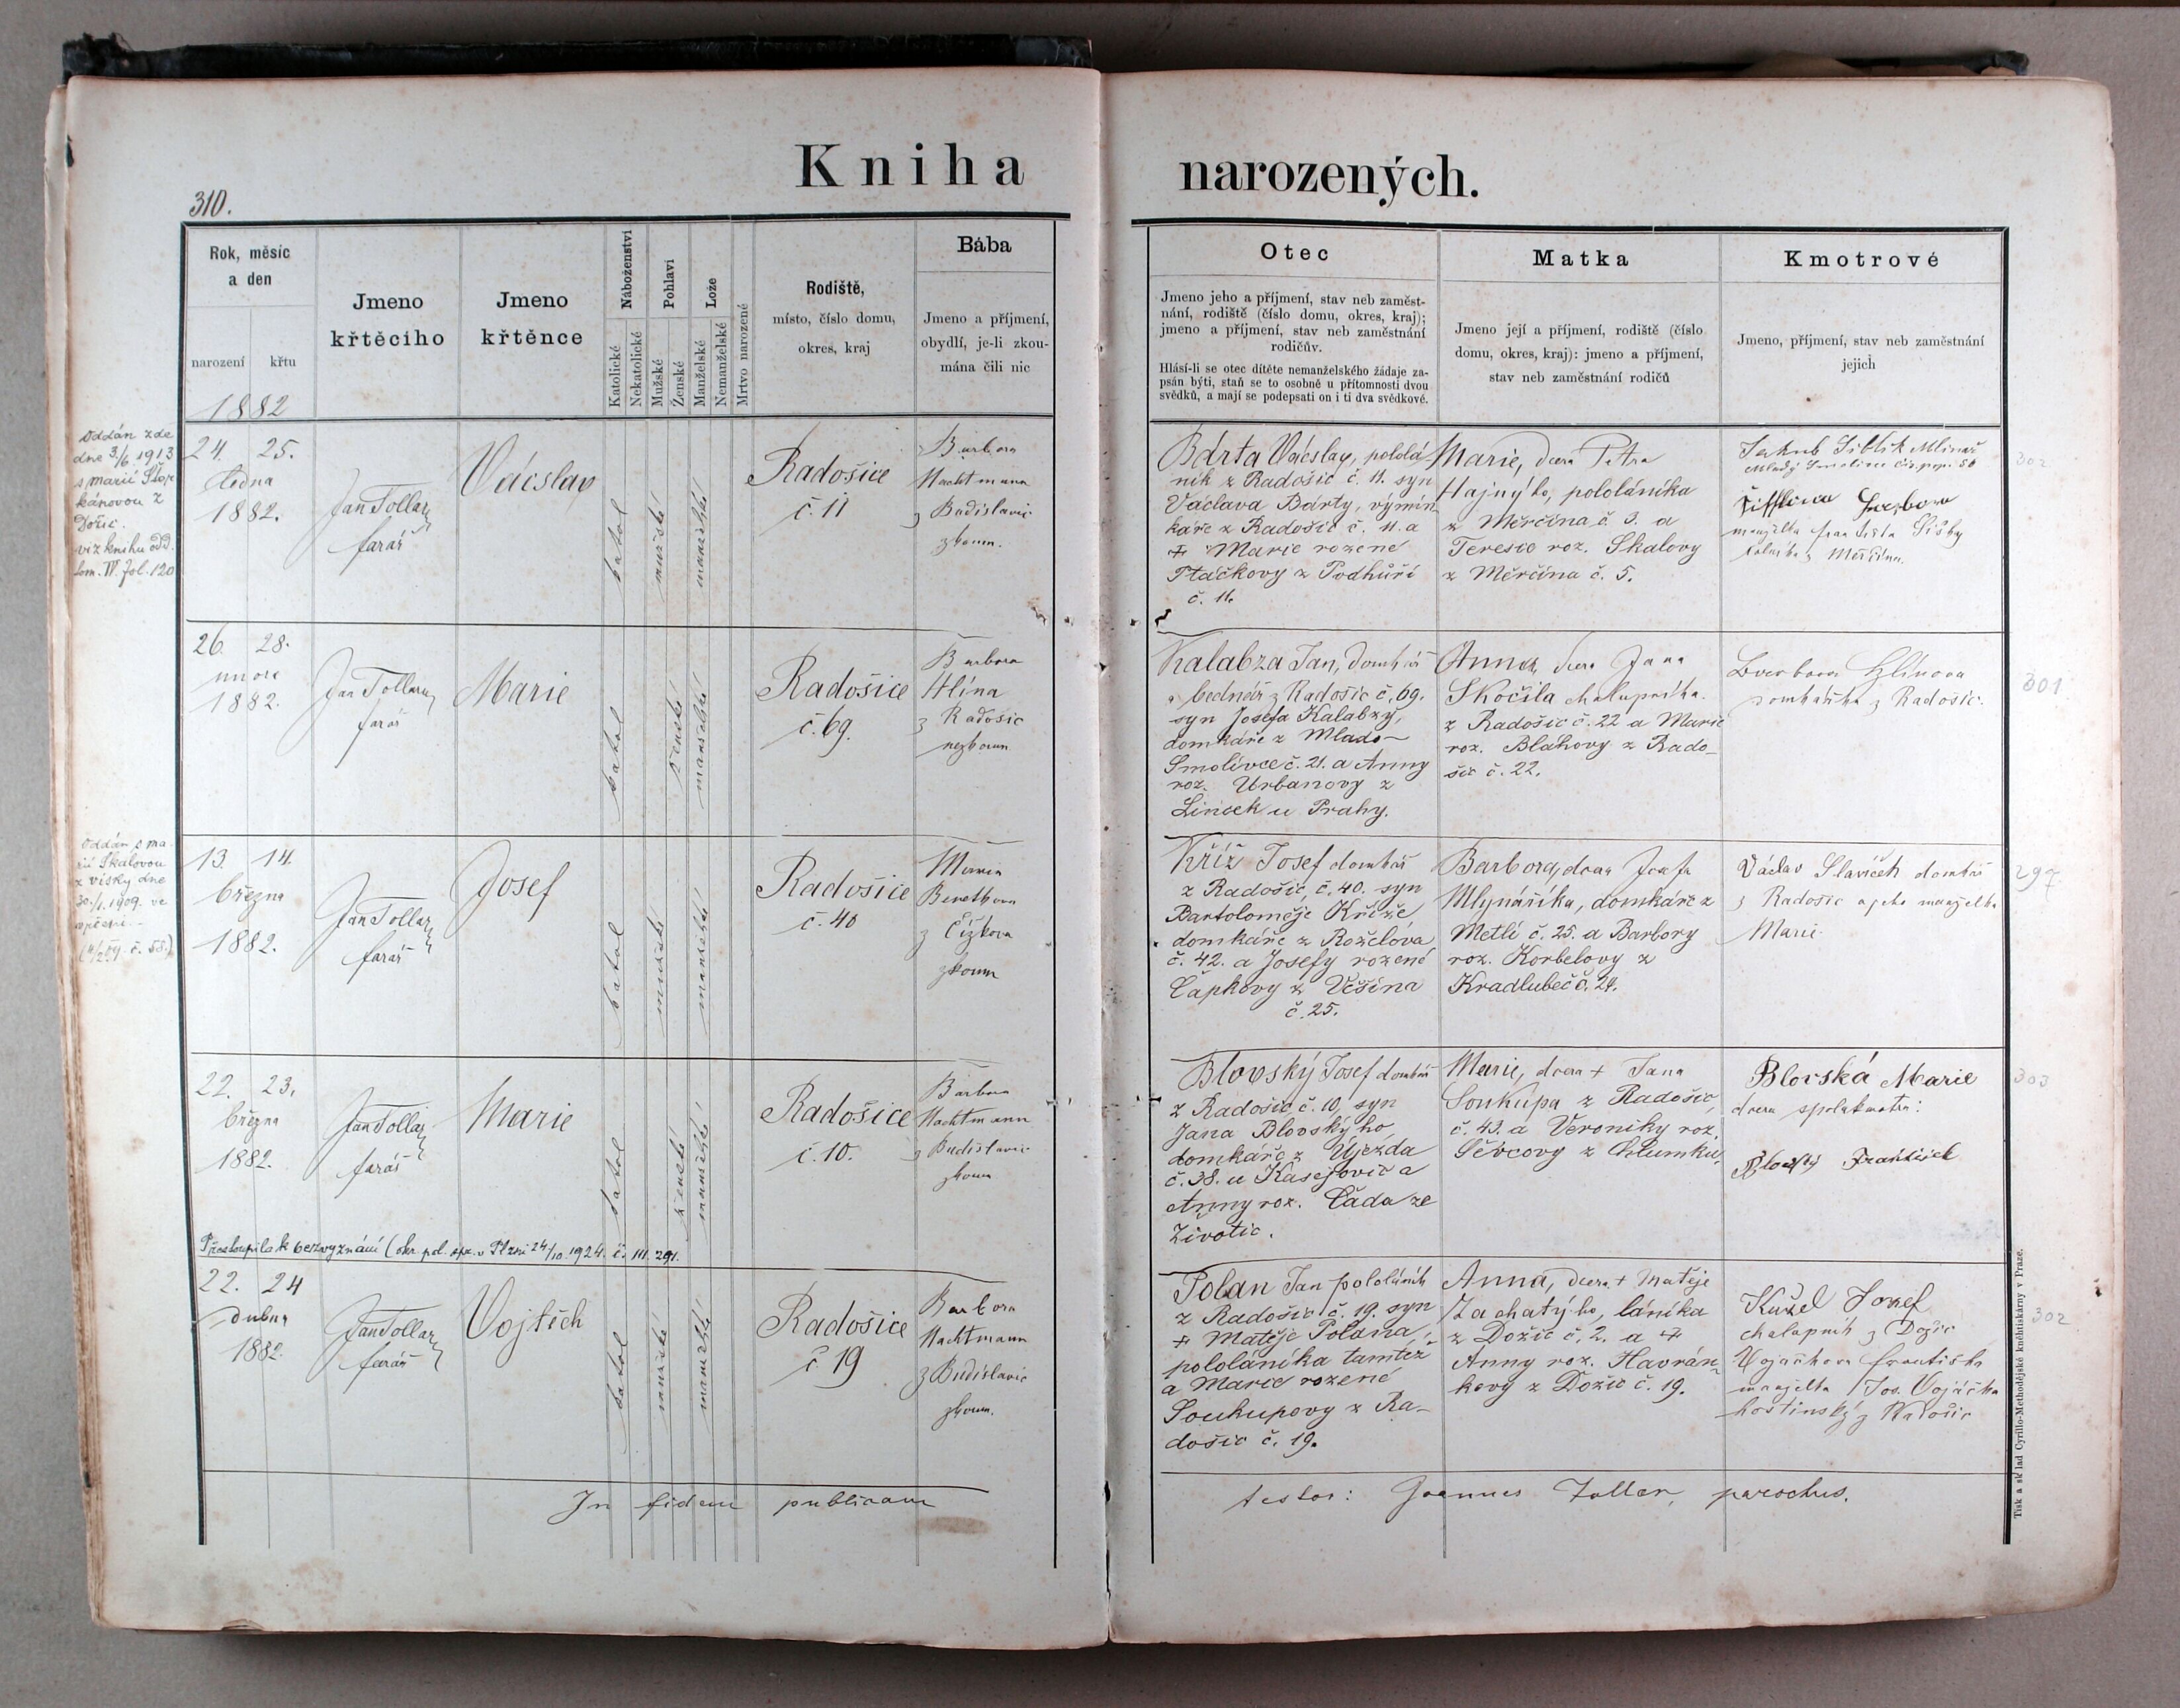 Kniha narozených.
310.
Rok, měsíc
a den
narození
křtu
1882
Jmeno
křtěcího
Jmeno
křtěnce
Náboženství
Katolické
Nekatolické
Pohlaví
Mužské
Ženské
Lože
Manželské
Nemanželské
Mrtvo narozené
Rodiště,
místo, číslo domu,
okres, kraj
Bába
Jmeno a příjmení,
obydlí, je-li zkou-
mána čili nic
Otec
Jmeno jeho a příjmení, stav neb zaměst-
nání, rodiště (číslo domu, okres, kraj);
jmeno a příjmení, stav neb zaměstnání
rodičův.
Hlásí-li se otec dítěte nemanželského žádaje za-
psán býti, staň se to osobně u přítomnosti dvou
svědků, a mají se podepsati on i ti dva svědkové.
Matka
Jmeno její a příjmení, rodiště (číslo
domu, okres, kraj): jmeno a příjmení,
stav neb zaměstnání rodičů
Kmotrové
Jmeno, příjmení, stav neb zaměstnání
jejich
Oddán zde
dne 3./6. 1913
s marií Štor-
kánovou z
Dožic.
viz knihu odd.
tom. IV. fol. 120
24. 25.
ledna
1882.
Jan Tollar
farář
Vácslav
katol
mužské
manželské
Radošice
č. 11
Barbora
Nachtmann
z Budislavic
zkoum.
Bárta Vácslav, pololá-
ník z Radošic č. 11. syn
Václava Bárty, výmin-
káře z Radošic č. 11. a
+ Marie rozené
Ptáčkovy z Podhůří
č. 11.
Marie, dcera Petra
Hajného, pololáníka
z Měrčína č. 3. a
Teresie roz. Skalovy
z Měrčína č. 5.
Jakub Šiblík Mlinář
Barbora
manželka františka
z Měrčína.
302
26. 28.
února
1882.
Jan Tollar
farář
Marie
katol
ženské
manželské
Radošice
č. 69.
Barbora
Hlína
z Radošic
nezkoum
Kalabza Jan, domkář
a bednář z Radošic č. 69.
syn Josefa Kalabzy,
domkáře z Mlado-
Smolivce č. 21. a Anny
roz. Urbanovy z
Lincek u Prahy.
Anna, dcera Jana
Skočila chalupníka
z Radošic č. 22 a Marie
roz. Bláhovy z Rado-
šic č. 22.
Barbora Hlínova
domkářka z Radošic.
301
Oddán s ma-
rií Skalovou
z Vísky dne
30./1. 1909. ve
13. 14.
března
1882.
Jan Tollar
farář
Josef
katol
mužské
manželské
Radošice
č. 40
Marie
z Čížkova
zkoum
Kříž Josef domkář
z Radošic, č. 40. syn
Bartoloměje Kříže,
domkáře z Roželova
č. 42. a Josefy rozené
Čapkovy z Věšína
č. 25.
Barbora, dcera Josefa
Mlynáříka, domkáře z
Metlí č. 25. a Barbory
roz. Korbelovy z
Hradlubeč č. 24.
Václav Slavíček domkář
z Radošic a jeho manželka
Marie.
297
22. 23.
března
1882.
Jan Tollar
farář
Marie
katol
ženské
manželské
Radošice
č. 10.
Barbora
Nachtmann
z Budislavic
zkoum
Blovský Josef domkář
z Radošic č. 10, syn
Jana Blovského,
domkáře z Újezda
č. 38. u Kasejovic a
Anny roz. Čada ze
Životic.
Marie, dcera + Jana
Soukupa z Radošic,
č. 43. a Veroniky roz.
Ševcovy z Chlumku.
Blovská Marie
dcera spolukmotra:
Blovský František
303
Přestoupila k bezvyznání (okr. pol. spr. v Plzni 24/10. 1924. č. III. 291.
22. 24
dubna
1882.
Jan Tollar
farář
Vojtěch
katol
mužské
manželské
Radošice
č 19
Barbora
Nachtmann
z Budislavic
zkoum.
Polan Jan pololáník
z Radošic č. 19. syn
+ Matěje Polana,
pololáníka tamtéž
a Marie rozené
Soukupovy z Ra-
došic č. 19.
Anna, dcera + Matěje
Zachatýho, láníka
z Dožic č. 2. a +
Anny roz. Havrán-
kovy z Dožic č. 19.
Kužel Josef
chalupník z Dožic
Vojáčkova františka
manželka Jos. Vojáčka
hostinský z Radošic
302
In fidem publicam
testor: Joannes Tollar, parochus.
Tisk a sklad Cyrillo-Methodějské knihtiskárny v Praze.